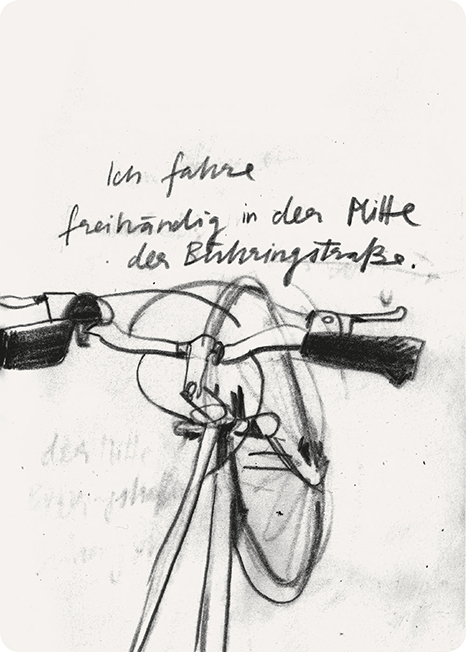 Ich fahre
freihändig in der Mitte
der Bühringstraße.
der Mitte